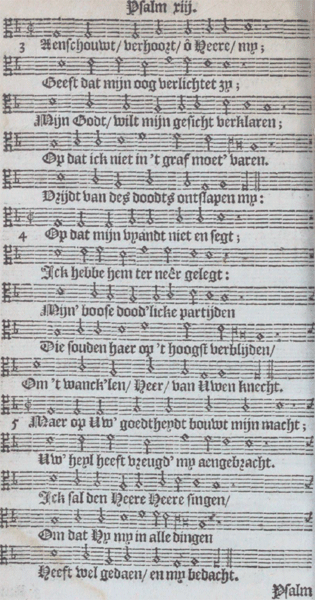 Psalm xiij.
3 Aenschouwt/ verhoort/ ô Heere/ my;
Geeft dat mijn oog verlichtet zy;
Mijn Godt/ wilt mijn gesicht verklaren;
Op dat ick niet in 't graf moet' varen.
Vrijdt van des doodts ontslapen my:
4 Op dat mijn vyandt niet en segt;
Ick hebbe hem ter neêr gelegt:
Mijn' boose dood'licke partijden
Die souden haer op 't hoogst verblijden/
Om 't wanck'len/ Heer/ van Uwen knecht.
5 Maer op Uw' goedtheydt bouwt mijn macht;
Uw' heyl heeft vreugd' my aengebracht.
Ick sal den Heere Heere singen/
Om dat Hy my in alle dingen
Heeft wel gedaen/ en my bedacht.
Psalm